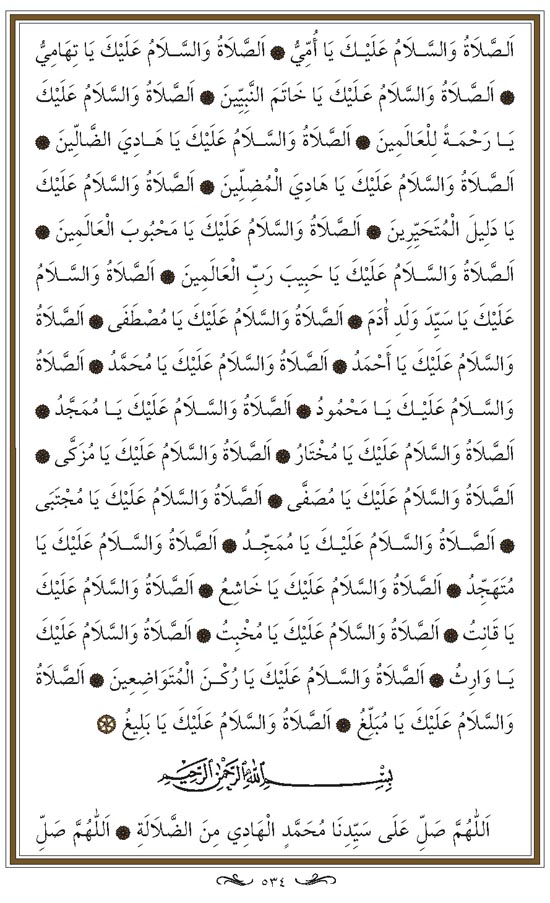 اَلصَّلَاةُ وَالسَّلَامُ عَلَيْكَ يَا أُمِّيُّ ۞ اَلصَّلَاةُ وَالسَّلَامُ عَلَيْكَ يَا تِهَامِيُّ
۞ اَلصَّلَاةُ وَالسَّلَامُ عَلَيْكَ يَا خَاتَمَ النَّبِيِّينَ ۞ اَلصَّلَاةُ وَالسَّلَامُ عَلَيْكَ
يَا رَحْمَةً لِلْعَالَمِينَ ۞ اَلصَّلَاةُ وَالسَّلَامُ عَلَيْكَ يَا هَادِيَ الضَّالِّينَ ۞
اَلصَّلَاةُ وَالسَّلَامُ عَلَيْكَ يَا هَادِيَ الْمُضِلِّينَ ۞ اَلصَّلَاةُ وَالسَّلَامُ عَلَيْكَ
يَا دَلِيلَ الْمُتَحَيِّرِينَ ۞ اَلصَّلَاةُ وَالسَّلَامُ عَلَيْكَ يَا مَحْبُوبَ الْعَالَمِينَ ۞
اَلصَّلَاةُ وَالسَّلَامُ عَلَيْكَ يَا حَبِيبَ رَبِّ الْعَالَمِينَ ۞ اَلصَّلَاةُ وَالسَّلَامُ
عَلَيْكَ يَا سَيِّدَ وَلَدِ أٰدَمَ ۞ اَلصَّلَاةُ وَالسَّلَامُ عَلَيْكَ يَا مُصْطَفَى ۞ اَلصَّلَاةُ
وَالسَّلَامُ عَلَيْكَ يَا أَحْمَدُ ۞ اَلصَّلَاةُ وَالسَّلَامُ عَلَيْكَ يَا مُحَمَّدُ ۞ اَلصَّلَاةُ
وَالسَّلَامُ عَلَيْكَ يَا مَحْمُودُ ۞ اَلصَّلَاةُ وَالسَّلَامُ عَلَيْكَ يَا مُمَجَّدُ ۞
اَلصَّلَاةُ وَالسَّلَامُ عَلَيْكَ يَا مُخْتَارُ ۞ اَلصَّلَاةُ وَالسَّلَامُ عَلَيْكَ يَا مُزَكَّى ۞
اَلصَّلَاةُ وَالسَّلَامُ عَلَيْكَ يَا مُصَفَّى ۞ اَلصَّلَاةُ وَالسَّلَامُ عَلَيْكَ يَا مُجْتَبَى
۞ اَلصَّلَاةُ وَالسَّلَامُ عَلَيْكَ يَا مُمَجِّدُ ۞ اَلصَّلَاةُ وَالسَّلَامُ عَلَيْكَ يَا
مُتَهَجِّدُ ۞ اَلصَّلَاةُ وَالسَّلَامُ عَلَيْكَ يَا خَاشِعُ ۞ اَلصَّلَاةُ وَالسَّلَامُ عَلَيْكَ
يَا قَانِتُ ۞ اَلصَّلَاةُ وَالسَّلَامُ عَلَيْكَ يَا مُخْبِتُ ۞ اَلصَّلَاةُ وَالسَّلَامُ عَلَيْكَ
يَا وَارِثُ ۞ اَلصَّلَاةُ وَالسَّلَامُ عَلَيْكَ يَا رُكْنَ الْمُتَوَاضِعِينَ ۞ اَلصَّلَاةُ
وَالسَّلَامُ عَلَيْكَ يَا مُبَلِّغُ ۞ اَلصَّلَاةُ وَالسَّلَامُ عَلَيْكَ يَا بَلِيغُ ۞
بِسْمِ اللّٰهِ الرَّحْمٰنِ الرَّحِيمِ
اَللّٰهُمَّ صَلِّ عَلَى سَيِّدِنَا مُحَمَّدٍ الْهَادِي مِنَ الضَّلَالَةِ ۞ اَللّٰهُمَّ صَلِّ
٥٣٤